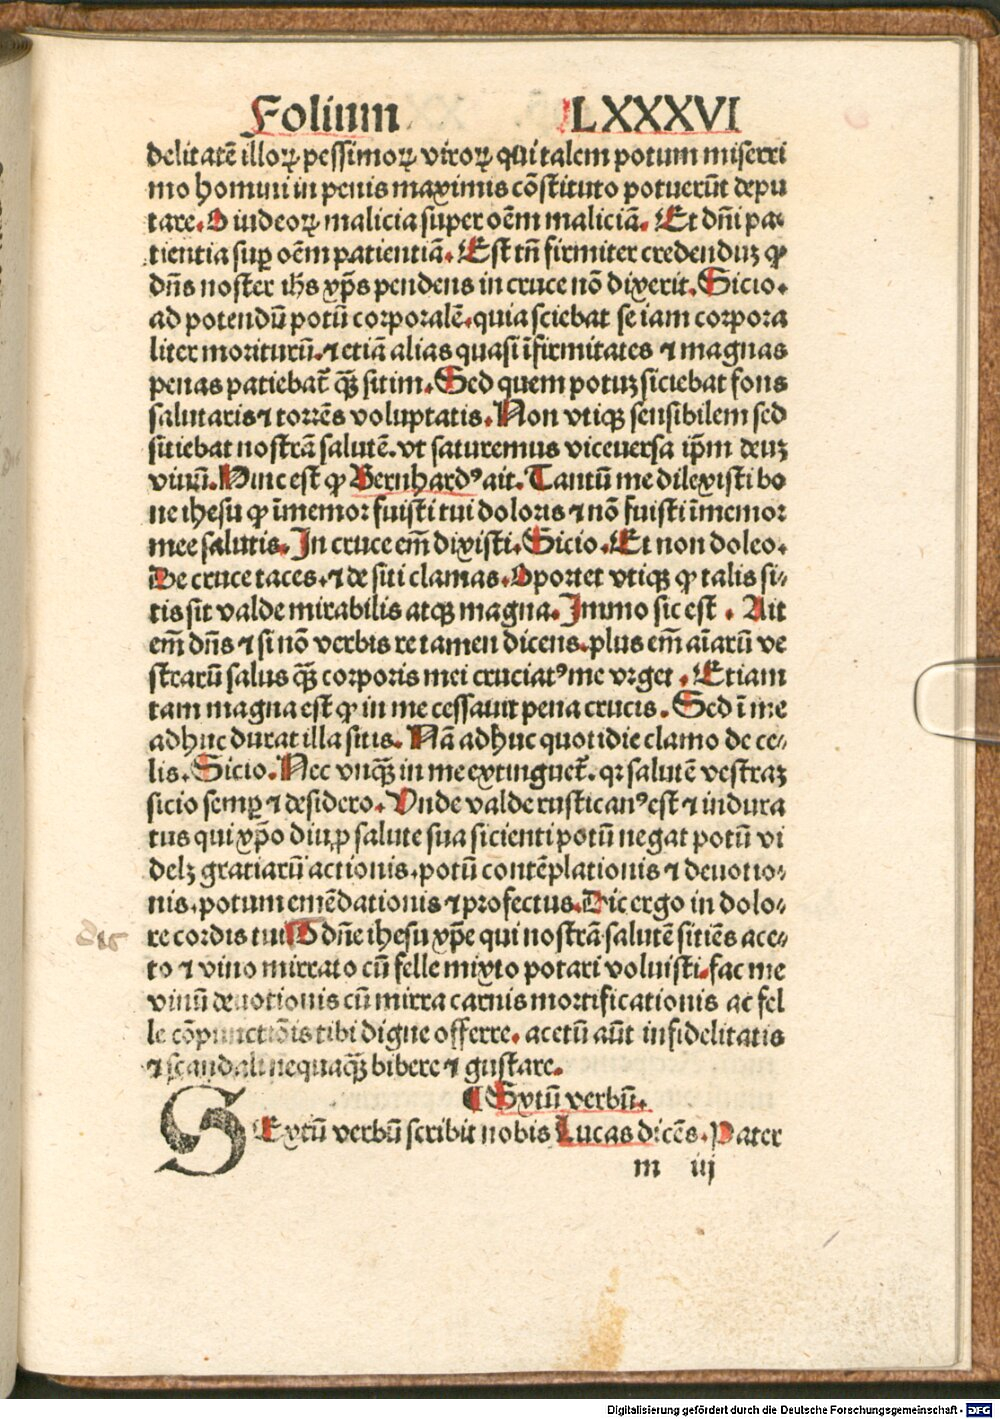 Folium LXXXVI
delitatē illoꝝ pessimoꝝ viroꝝ qui talem potum miserri
mo homini in penis maximis cōstituto potuerūt depu
tare. O iudeoꝝ malicia super oēm maliciā. Et dñi pa⸗
tientia suꝑ oēm patientiā. Est tñ firmiter credenduꝫ ꝙ
dñs noster ihs xp̄s pendens in cruce nō dixerit. Sicio.
ad potendū potū corporalē. quia sciebat se iam corpora
liter moriturū. ⁊ etiā alias quasi īfirmitates ⁊ magnas
penas patiebat̄ qꝫ̄ sitim. Sed quem potuꝫ siciebat fons
salutaris ⁊ torrēs voluptatis. Non vtiqꝫ sensibilem sed
sitiebat nostrā salutē. vt saturemus viceuersa ip̄m deuꝫ
viuū. Hinc est ꝙ Bernhardꝰ ait. Tantū me dilexisti bo
ne ihesu ꝙ īmemor fuisti tui doloris ⁊ nō fuisti īmemor
mee salutis. In cruce em̄ dixisti. Sicio. Et non doleo.
De cruce taces. ⁊ de siti clamas. Oportet vtiqꝫ ꝙ talis si⸗
tis sit valde mirabilis atqꝫ magna. Immo sic est. Ait
em̄ dñs ⁊ si nō verbis re tamen dicens. plus em̄ aīarū ve
strarū salus qꝫ̄ corporis mei cruciatꝰ me vrget. Etiam
tam magna est ꝙ in me cessauit pena crucis. Sed ī me
adhuc durat illa sitis. Nā adhuc quotidie clamo de ce⸗
lis. Sicio. Nec vnqꝫ̄ in me extinguet̄. qꝛ salutē vestraꝫ
sicio semꝑ ⁊ desidero. Vnde valde rusticanꝰ est ⁊ indura
tus qui xp̄o diu ꝓ salute sua sicienti potū negat potū vi
delꝫ gratiarū actionis. potū contēplationis ⁊ deuotio⸗
nis. potum emēdationis ⁊ profectus. Dic ergo in dolo⸗
re cordis tui O dñe ihesu xp̄e qui nostrā salutē sitiēs ace⸗
to ⁊ vino mirrato cū felle mixto potari voluisti. fac me
vinū deuotionis cū mirra carnis mortificationis ac fel
le cōpunctiōis tibi digne offerre. acetū aūt infidelitatis
⁊ scandali nequaqꝫ̄ bibere ⁊ gustare.
¶ Sextū verbū.
SExtū verbū scribit nobis Lucas dicēs. Pater
m iij
Digitalisierung gefördert durch die Deutsche Forschungsgemeinschaft - DFG